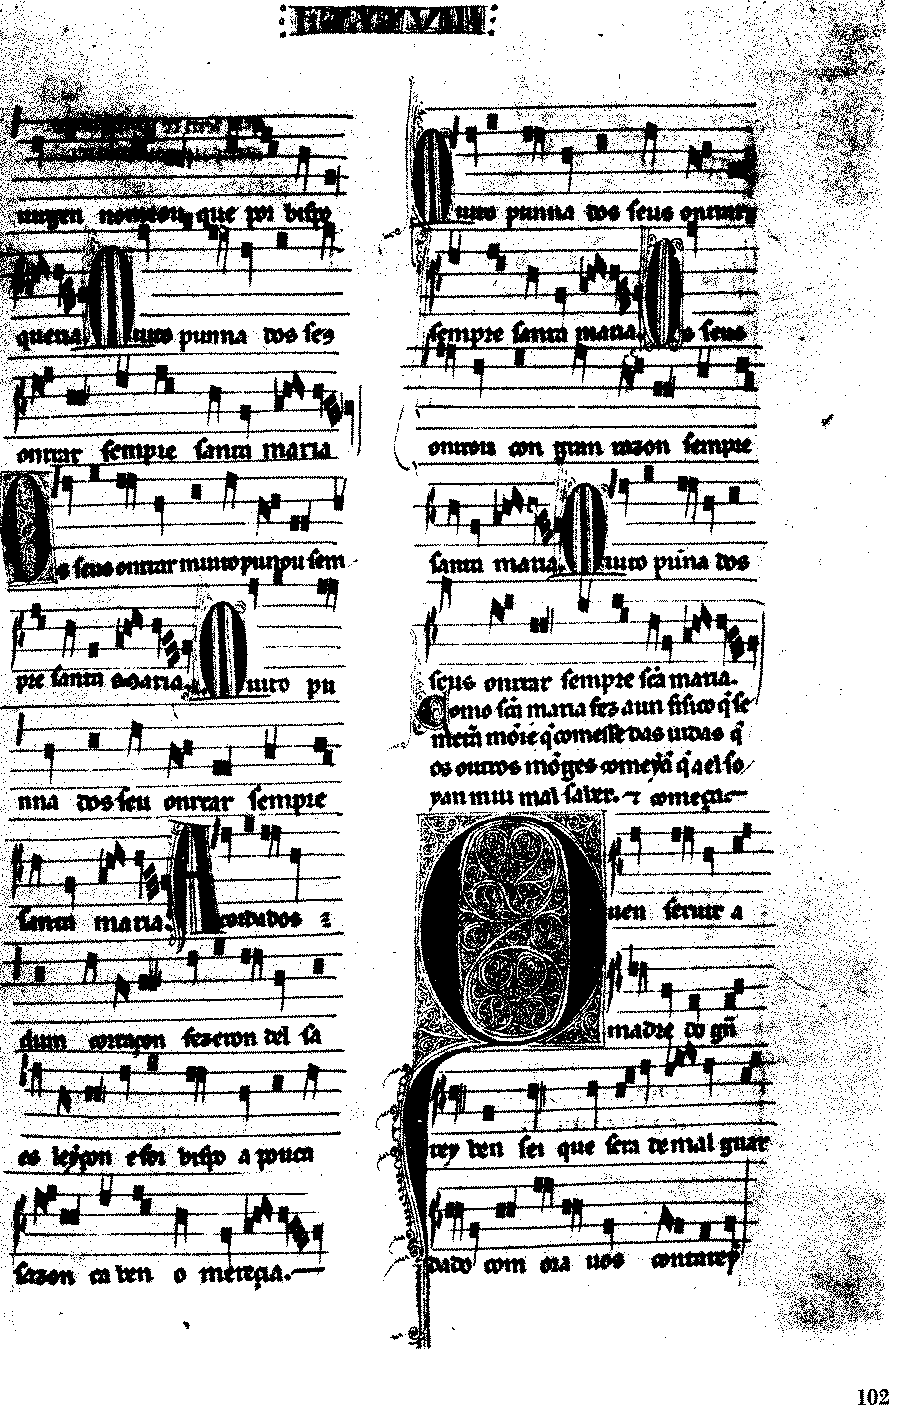 que foi bispo
queria. Muito punna dos ses
onrrar sempre santa maria
Os seus onrrar muito punnou sem
pre santa maria. Muito pu
nna dos seu onrrar sempre
santa maria. Acordados ⁊
dum coraçon fezeron del sa
es leyçon e foi bispo a pouca
sazon ca ben o merecia.
Muito punna dos seus onrrar
sempre santa maria. Os seus
onrrou con gran razon sempre
santa maria. Muito pũna dos
seus onrrar sempre sc̃a maria.
Como sc̃a maria fez a un
os outros mõges comeyã q̃ ael fo
yan mui mal saber. ⁊ começa.
Quen seruir a
madre do grã
rey ben sei que sera de mal guar
dado com ora uos contarey
102